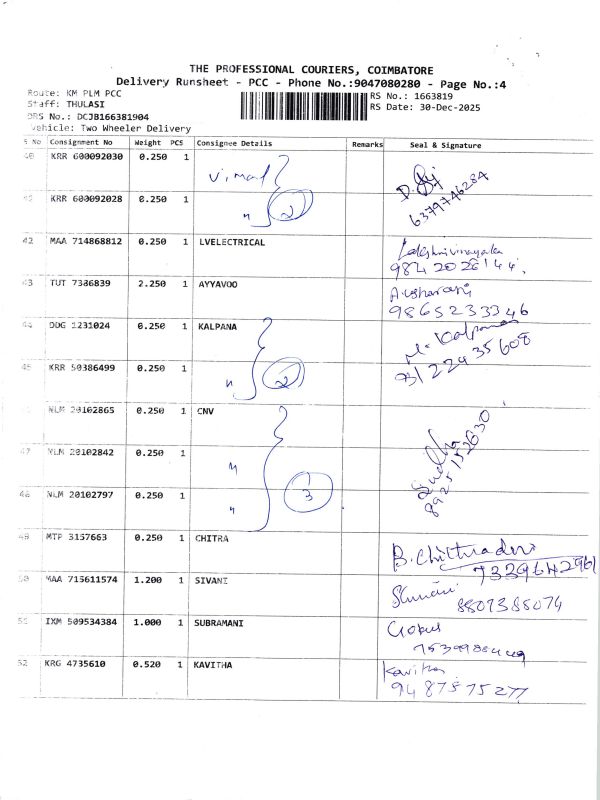 THE PROFESSIONAL COURIERS, COIMBATORE
Delivery Runsheet - PCC - Phone No.:9047080280 - Page No.:4
Route: KM PLM PCC
RS No.: 1663819
Staff: THULASI
RS Date: 30-Dec-2025
DRS No.: DCJB166381904
Vehicle: Two Wheeler Delivery
S No Consignment No Weight PCS Consignee Details Remarks Seal & Signature
40 KRR 600092030 0.250 1 Vimal
6379746284
41 KRR 600092028 0.250 1 " 2
42 MAA 714868812 0.250 1 LVELECTRICAL Lakshmivinayaka
9842026144
43 TUT 7386839 2.250 1 AYYAVOO
9865233346
44 DDG 1231024 0.250 1 KALPANA M. Kalpana
45 KRR 50386499 0.250 1 " 2 8122435608
46 NLM 20102865 0.250 1 CNV
47 NLM 20102842 0.250 1 " Sudha
8925152630
48 NLM 20102797 0.250 1 " 3
49 MTP 3157663 0.250 1 CHITRA B. Chithradevi
7339642961
50 MAA 715611574 1.200 1 SIVANI
8807388074
51 IXM 509534384 1.000 1 SUBRAMANI
52 KRG 4735610 0.520 1 KAVITHA Kavitha
9487575277